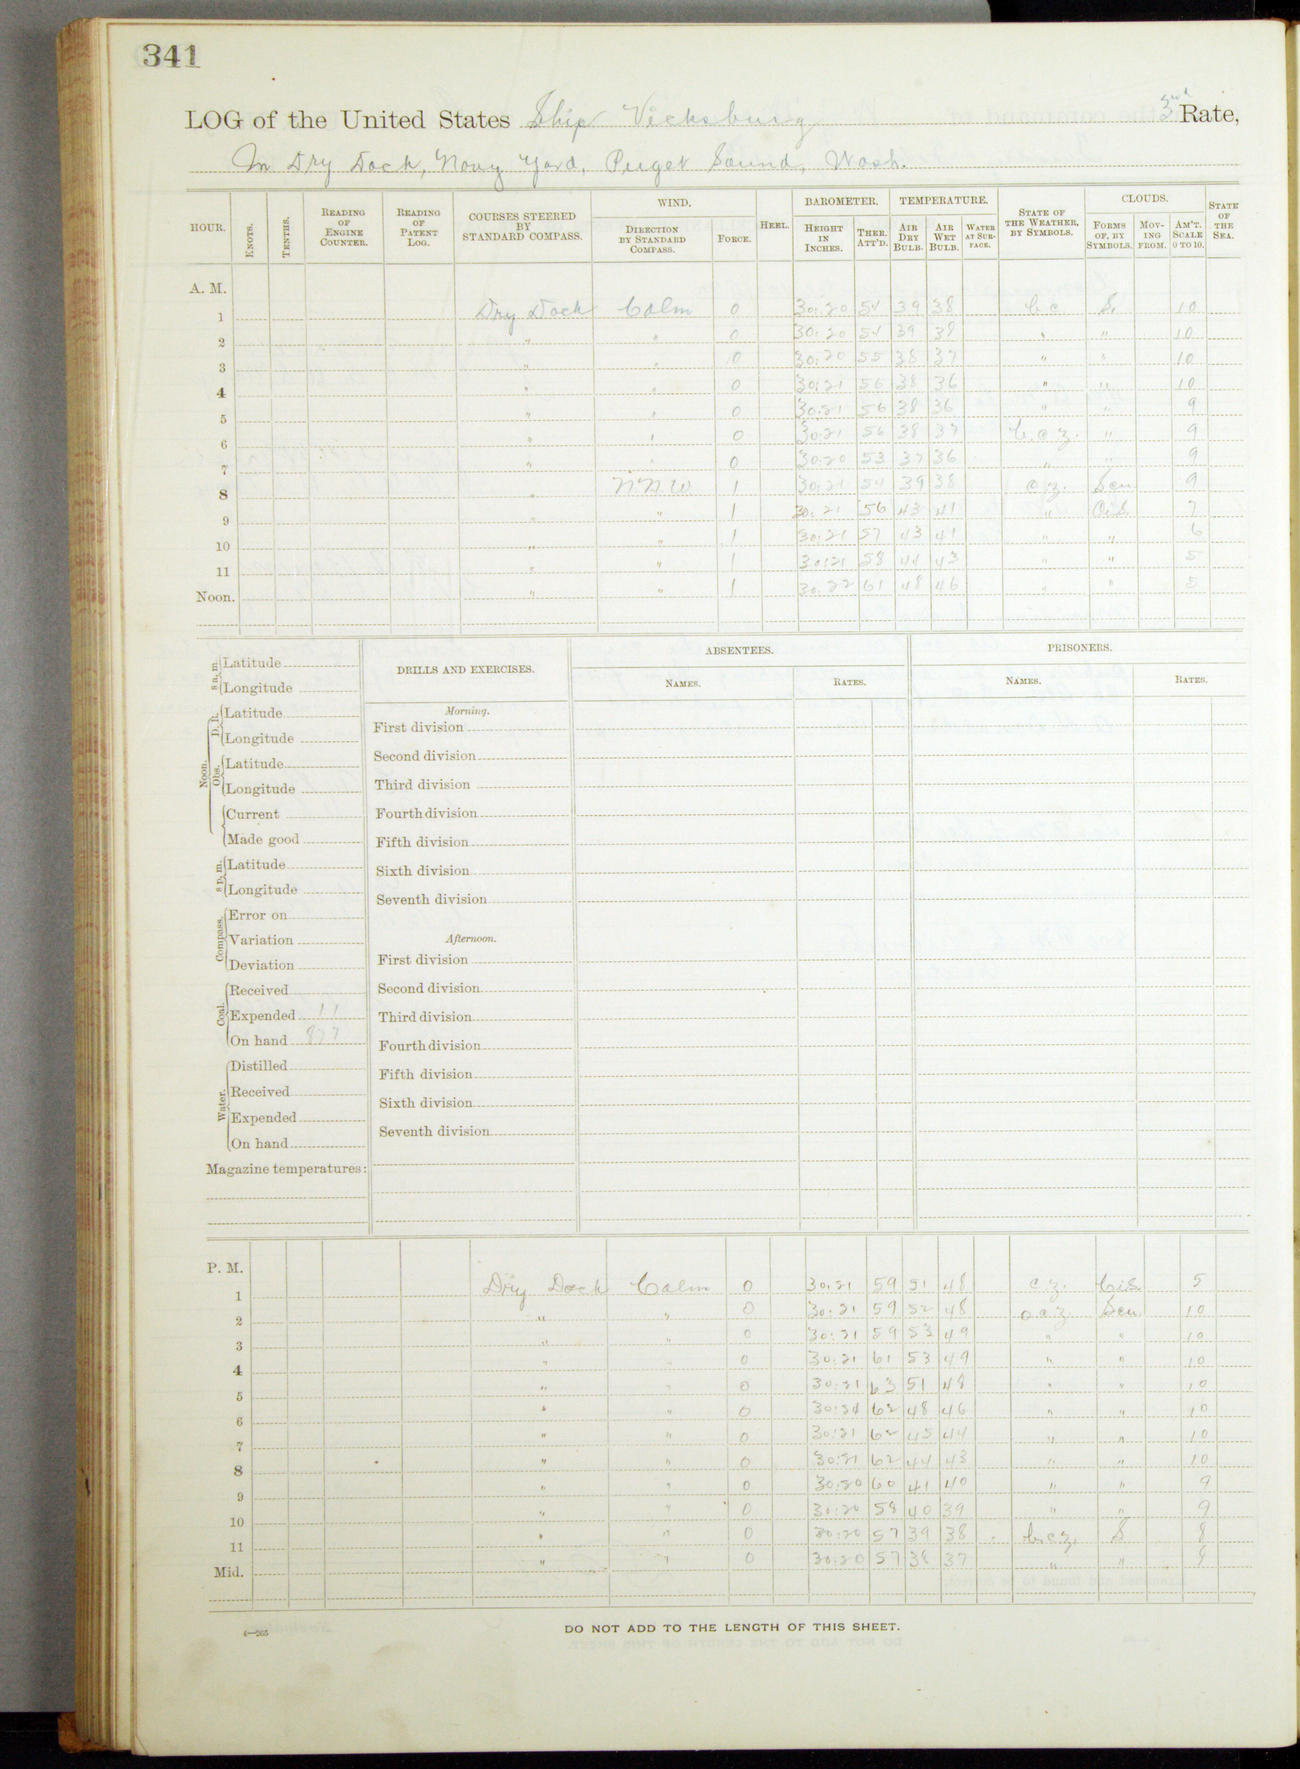 341
LOG of the United States Ship Vicksburg 3rd Rate,
In Dry Dock, Navy Yard, Puget Sound, Wash.
HOUR. KNOTS. TENTHS. READING OF ENGINE COUNTER. READING OF PATENT LOG. COURSES STEERED BY STANDARD COMPASS. WIND. DIRECTION BY STANDARD COMPASS. FORCE. HEEL. BAROMETER. HEIGHT IN INCHES. THER. ATT'D. TEMPERATURE. AIR DRY BULB. AIR WET BULB. WATER AT SURFACE. STATE OF THE WEATHER, BY SYMBOLS. CLOUDS. FORMS OF, BY SYMBOLS. MOVING FROM. AM'T. SCALE 0 TO 10. STATE OF THE SEA.
A. M.
1 Dry Dock Calm 0 30.20 54 39 38 b.c. S. 10
2 " " 0 30.20 54 39 38 " " 10
3 " " 0 30.20 55 38 37 " " 10
4 " " 0 30.21 56 38 36 " " 10
5 " " 0 30.21 56 38 36 " " 9
6 " " 0 30.21 56 38 37 b.c.z. " 9
7 " " 0 30.20 53 37 36 " " 9
8 " N.N.W. 1 30.21 54 39 38 c.z. Scu 9
9 " " 1 30.21 56 43 41 " Ci.S. 7
10 " " 1 30.21 57 43 41 " " 6
11 " " 1 30.21 58 44 43 " " 5
Noon. " " 1 30.22 61 48 46 " " 5
8 a. m. Latitude
Longitude
Noon. D. R. Latitude
Longitude
Obs. Latitude
Longitude
Current
Made good
8 p. m. Latitude
Longitude
Compass. Error on
Variation
Deviation
Coal. Received
Expended 11
On hand 877
Water. Distilled
Received
Expended
On hand
Magazine temperatures:
DRILLS AND EXERCISES.
Morning.
First division
Second division
Third division
Fourth division
Fifth division
Sixth division
Seventh division
Afternoon.
First division
Second division
Third division
Fourth division
Fifth division
Sixth division
Seventh division
ABSENTEES.
NAMES. RATES.
PRISONERS.
NAMES. RATES.
P. M.
1 Dry Dock Calm 0 30.21 59 51 48 c.z. Ci.S. 5
2 " " 0 30.21 59 52 48 o.c.z. Scu. 10
3 " " 0 30.21 59 53 49 " " 10
4 " " 0 30.21 61 53 49 " " 10
5 " " 0 30.21 63 51 48 " " 10
6 " " 0 30.21 62 48 46 " " 10
7 " " 0 30.21 62 45 44 " " 10
8 " " 0 30.21 62 44 43 " " 10
9 " " 0 30.20 60 41 40 " " 9
10 " " 0 30.20 58 40 39 " " 9
11 " " 0 30.20 57 39 38 b.c.z. S 8
Mid. " " 0 30.20 57 38 37 " " 8
4—265
DO NOT ADD TO THE LENGTH OF THIS SHEET.